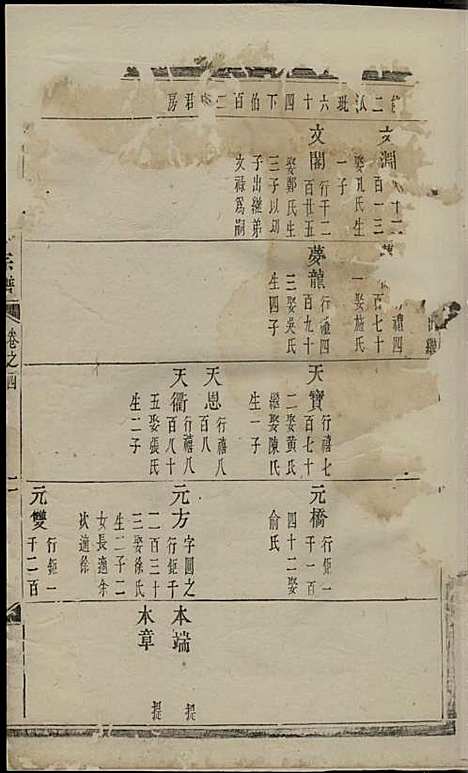 二汄玭六十四下伯百二君房
文淵
百一三
娶孔氏生
一子
文閣行千二
百廿五
娶鄭氏生
三子以㓛
子出繼弟
文祿爲嗣
行禮四
百七十
一娶施氏
夢龍行禮四
百九十
三娶吳氏
生四子
天寶行禧七
百七十
二娶黄氏
繼娶陳氏
生一子
天恩行禧八
百八
天衢行禧八
百八十
五娶張氏
生二子
元橋行鉅一
千一百
四十二娶
俞氏
元方字圓之
行鉅千
二百三十
三娶徐氏
生二子二
女長適余
次適徐
元雙行鉅一
千二百
本端提
木章提
宗譜
卷之四
二